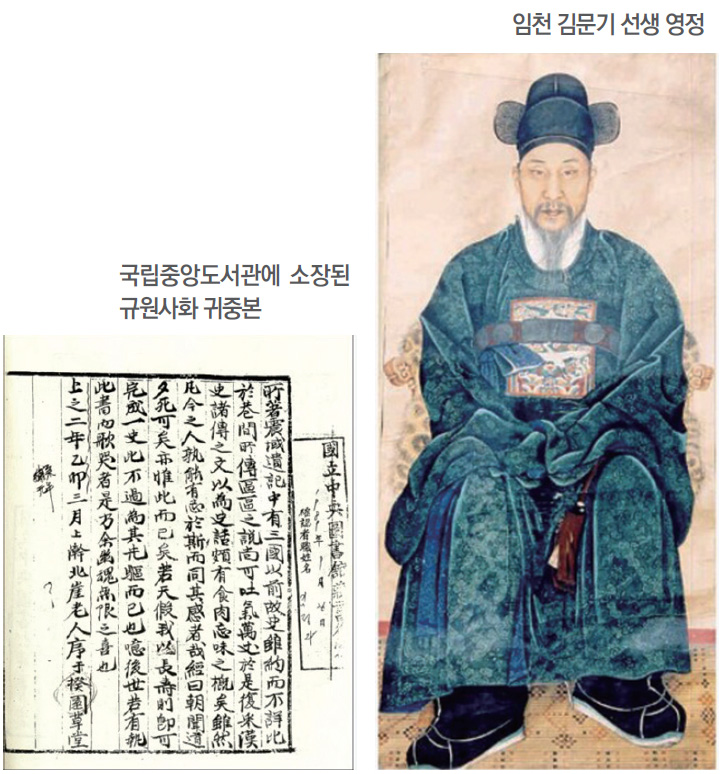 임천 김문기 선생 영정
국립중앙도서관에 소장된
규원사화 귀중본
國立中央圖書館
年 月 日
確認者職姓名
所著震域遺記中有三國以前故史雖約而不詳比
於巷間所傳區區之說尚可吐氣萬丈於是復采漢
史諸傳之文以為史話頗有食肉忘味之概矣雖然
凡今之人孰能有志於斯而同其感者哉經曰朝聞道
夕死可矣亦惟此而已矣若天假我以長壽則即可
完成一史此不過為其先驅而已也噫後世若有執
此書而歌哭者是乃余幽魂無限之喜也
上之二年乙卯三月上澣北崖老人序于揆園草堂